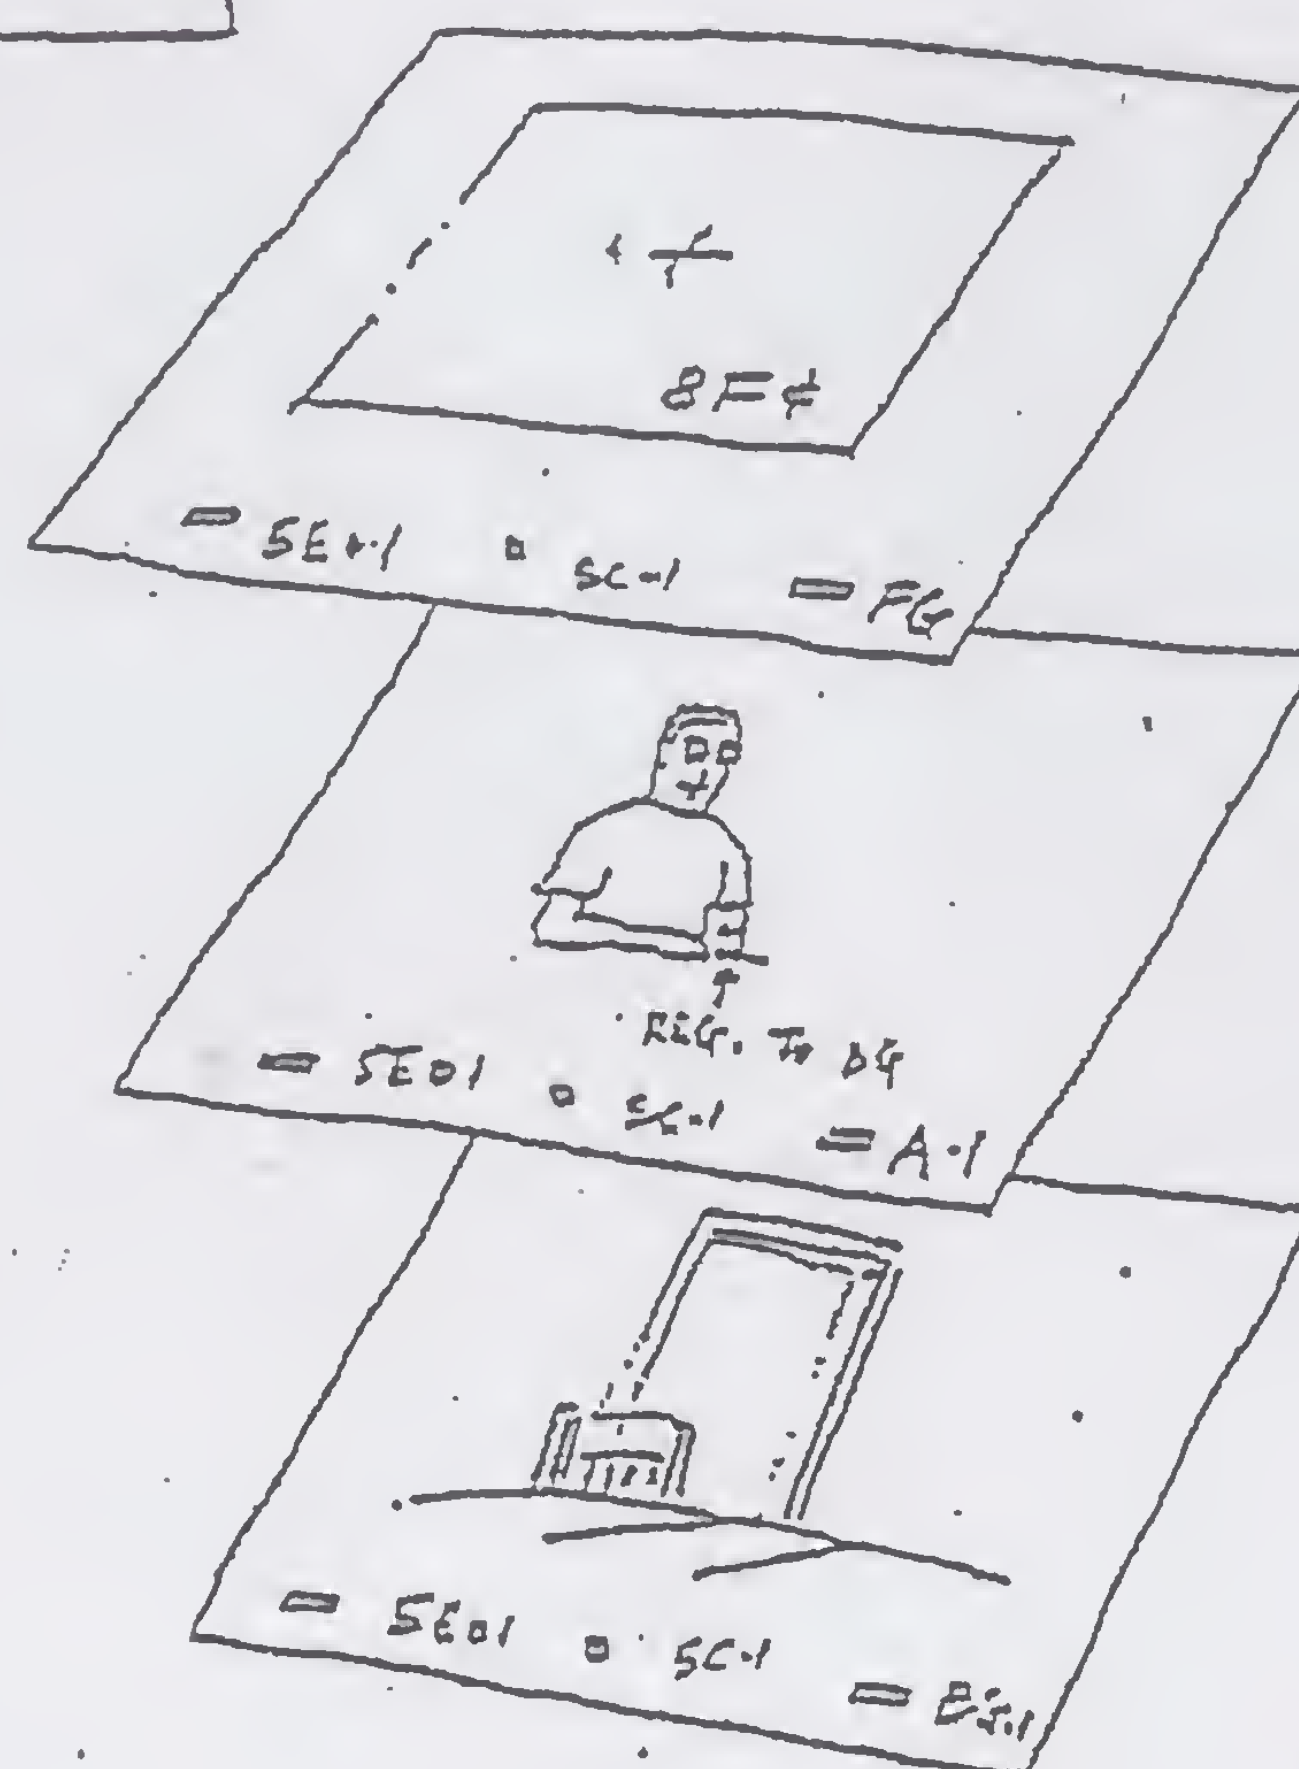 8F¢
SE•1 SC-1 FG
REG. TO BG
SE•1 SC-1 A-1
SE•1 SC-1